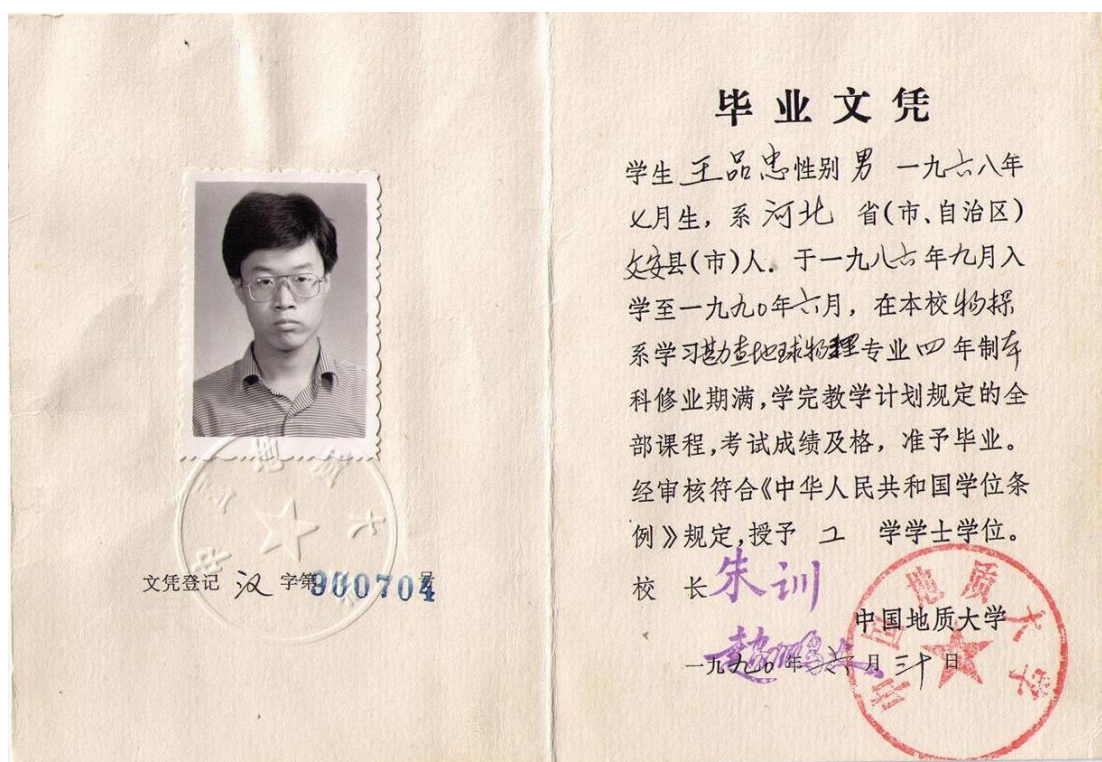 中国地质大
文凭登记 汉 字第900704号
毕业文凭
学生王品忠性别男 一九六八年
七月生，系河北 省(市、自治区)
文安县(市)人．于一九八六年九月入
学至一九九0年六月，在本校物探
系学习勘查地球物理专业四年制本
科修业期满，学完教学计划规定的全
部课程，考试成绩及格，准予毕业。
经审核符合《中华人民共和国学位条
例》规定，授予 工 学学士学位。
校 长 朱训
赵鹏大
中国地质大学
一九九0年六月三十日
中国地质大学